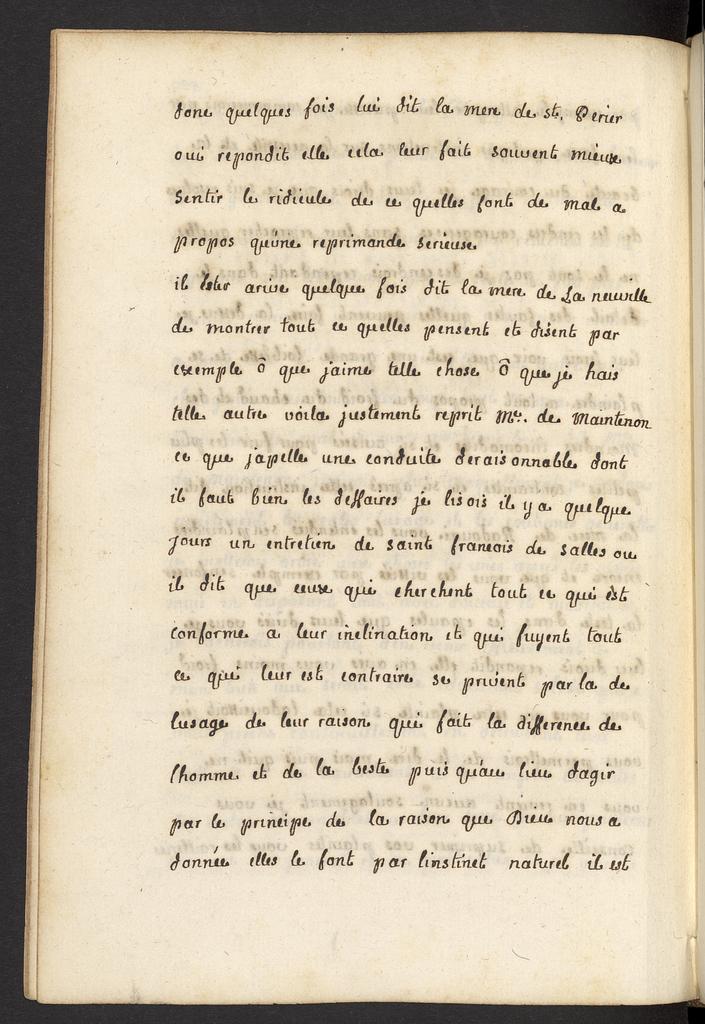 donc quelques fois lui dit la mere de st. Perier
oui repondit elle cela leur fait souvent mieux
Sentir le ridicule de ce quelles font de mal a
propos qu'une reprimande serieuse
il leur arive quelque fois dit la mere de La neuville
de montrer tout ce quelles pensent et disent par
exemple ô que j'aime telle chose ô que je hais
telle autre voila justement reprit Me. de Maintenon
ce que j'apelle une conduite deraisonnable dont
il faut bien les deffaires je lisois il y a quelque
jours un entretien de saint francois de salles ou
il dit que ceux qui cherchent tout ce qui est
conforme a leur inclination et qui fuyent tout
ce qui leur est contraire se privent par la de
lusage de leur raison qui fait la difference de
lhomme et de la beste puis qu'au lieu dagir
par le principe de la raison que Dieu nous a
donnée elles le font par linstinct naturel il est